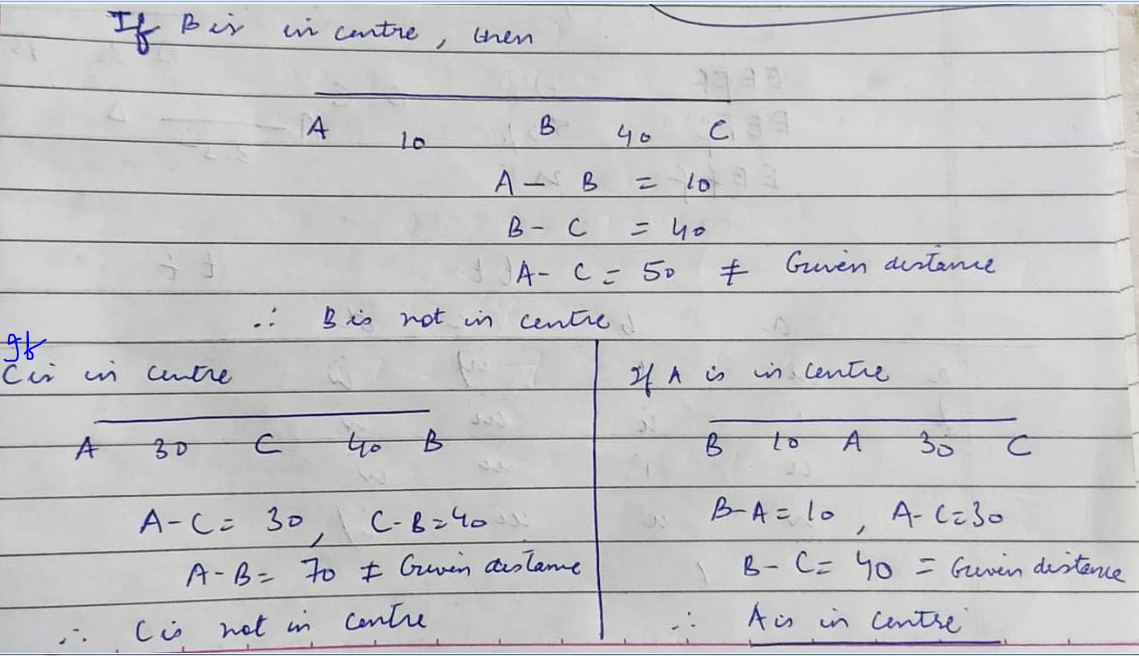 If B is in centre, then
A 10 B 40 C
A - B = 10
B - C = 40
A - C = 50 ≠ Given distance
∴ B is not in centre
If
C is in centre
A 30 C 40 B
A - C = 30, C - B = 40
A - B = 70 ≠ Given distance
∴ C is not in centre
If A is in centre
B 10 A 30 C
B - A = 10, A - C = 30
B - C = 40 = Given distance
∴ A is in centre